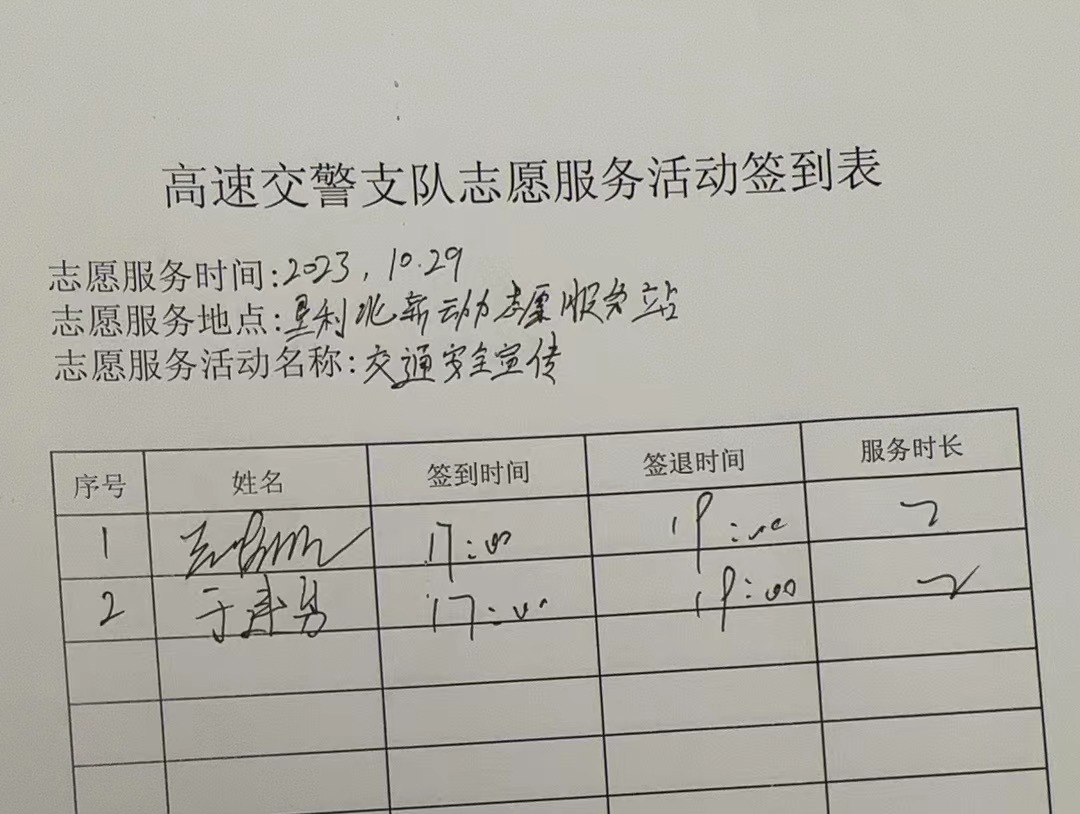 高速交警支队志愿服务活动签到表
志愿服务时间:2023,10.29
志愿服务地点:垦利北新动力志愿服务站
志愿服务活动名称:交通安全宣传
序号 姓名 签到时间 签退时间 服务时长
1 17:00 19:00 2
2 于建勇 17:00 19:00 2